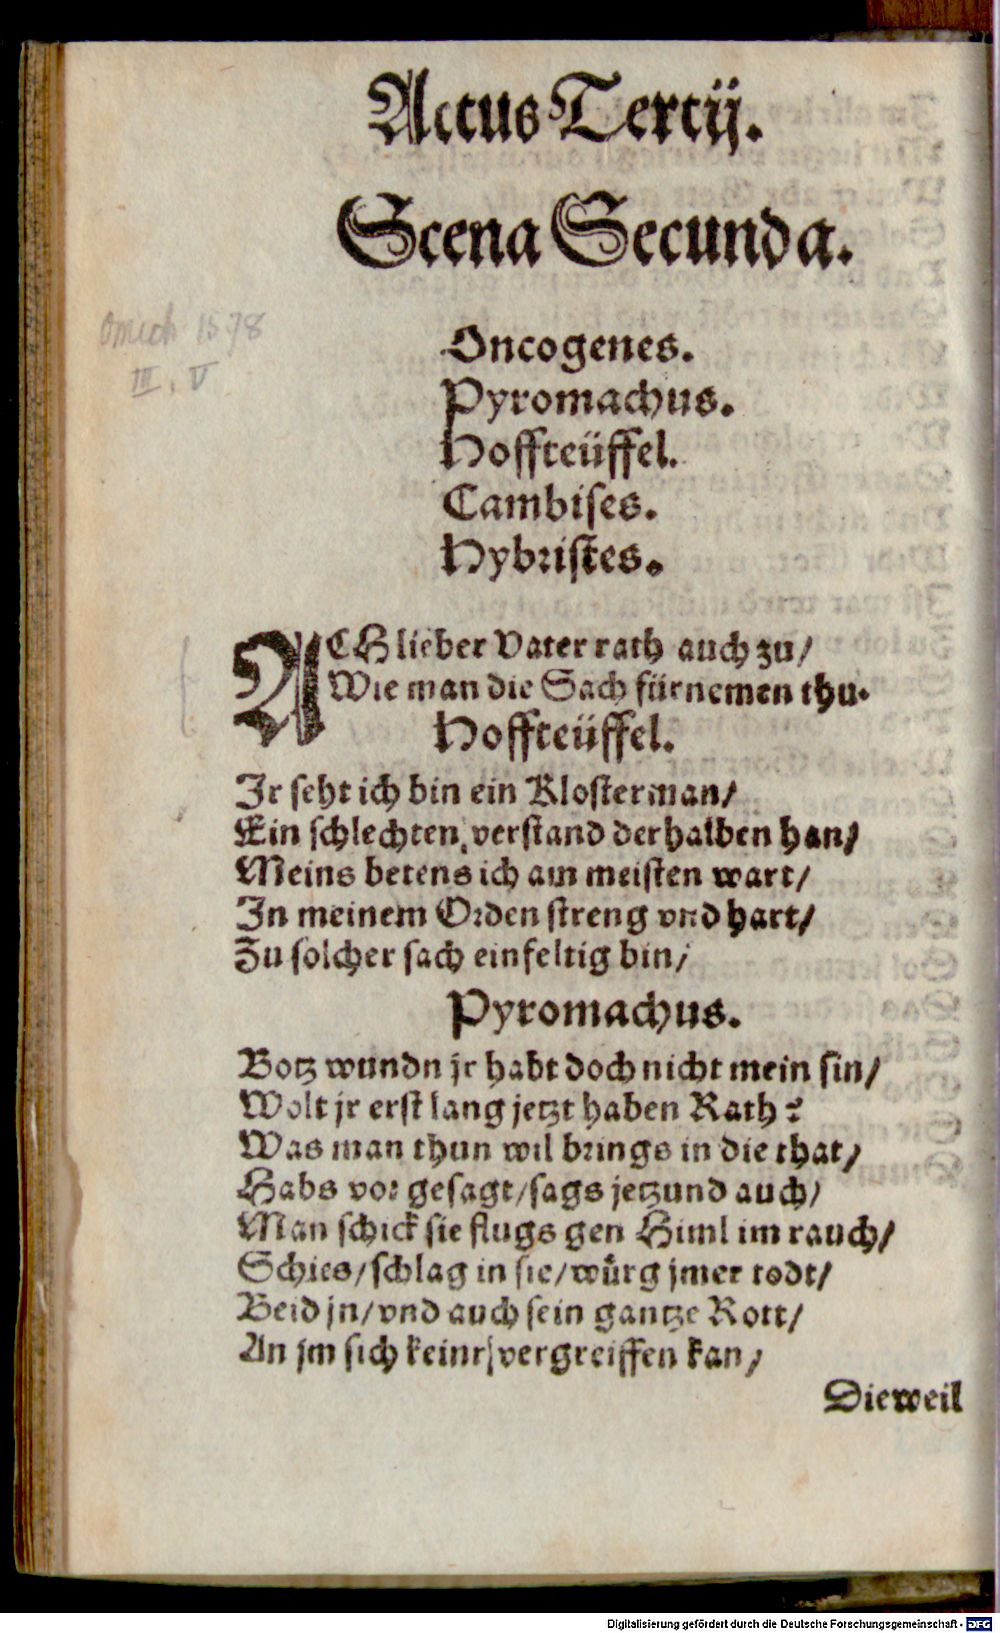 Actus Tertij.
Scena Secunda.
Omich 1578
III. V
Oncogenes.
Pyromachus.
Hoffteüffel.
Cambiſes.
Hybriſtes.
ACH lieber Vater rath auch zu/
Wie man die Sach fürnemen thu.
Hoffteüffel.
Jr ſeht ich bin ein Kloſterman/
Ein ſchlechten verſtand derhalben han/
Meins betens ich am meiſten wart/
Jn meinem Orden ſtreng vnd hart/
Zu ſolcher ſach einfeltig bin/
Pyromachus.
Botz wundn jr habt doch nicht mein ſin/
Wolt jr erſt lang jetzt haben Rath?
Was man thun wil brings in die that/
Habs vor geſagt/ſags jetzund auch/
Man ſchick ſie flugs gen Himl im rauch/
Schies/ſchlag in ſie/wuͤrg jmer todt/
Beid jn/vnd auch ſein gantze Rott/
An jm ſich keinr vergreiffen kan/
Dieweil
Digitalisierung gefördert durch die Deutsche Forschungsgemeinschaft - DFG